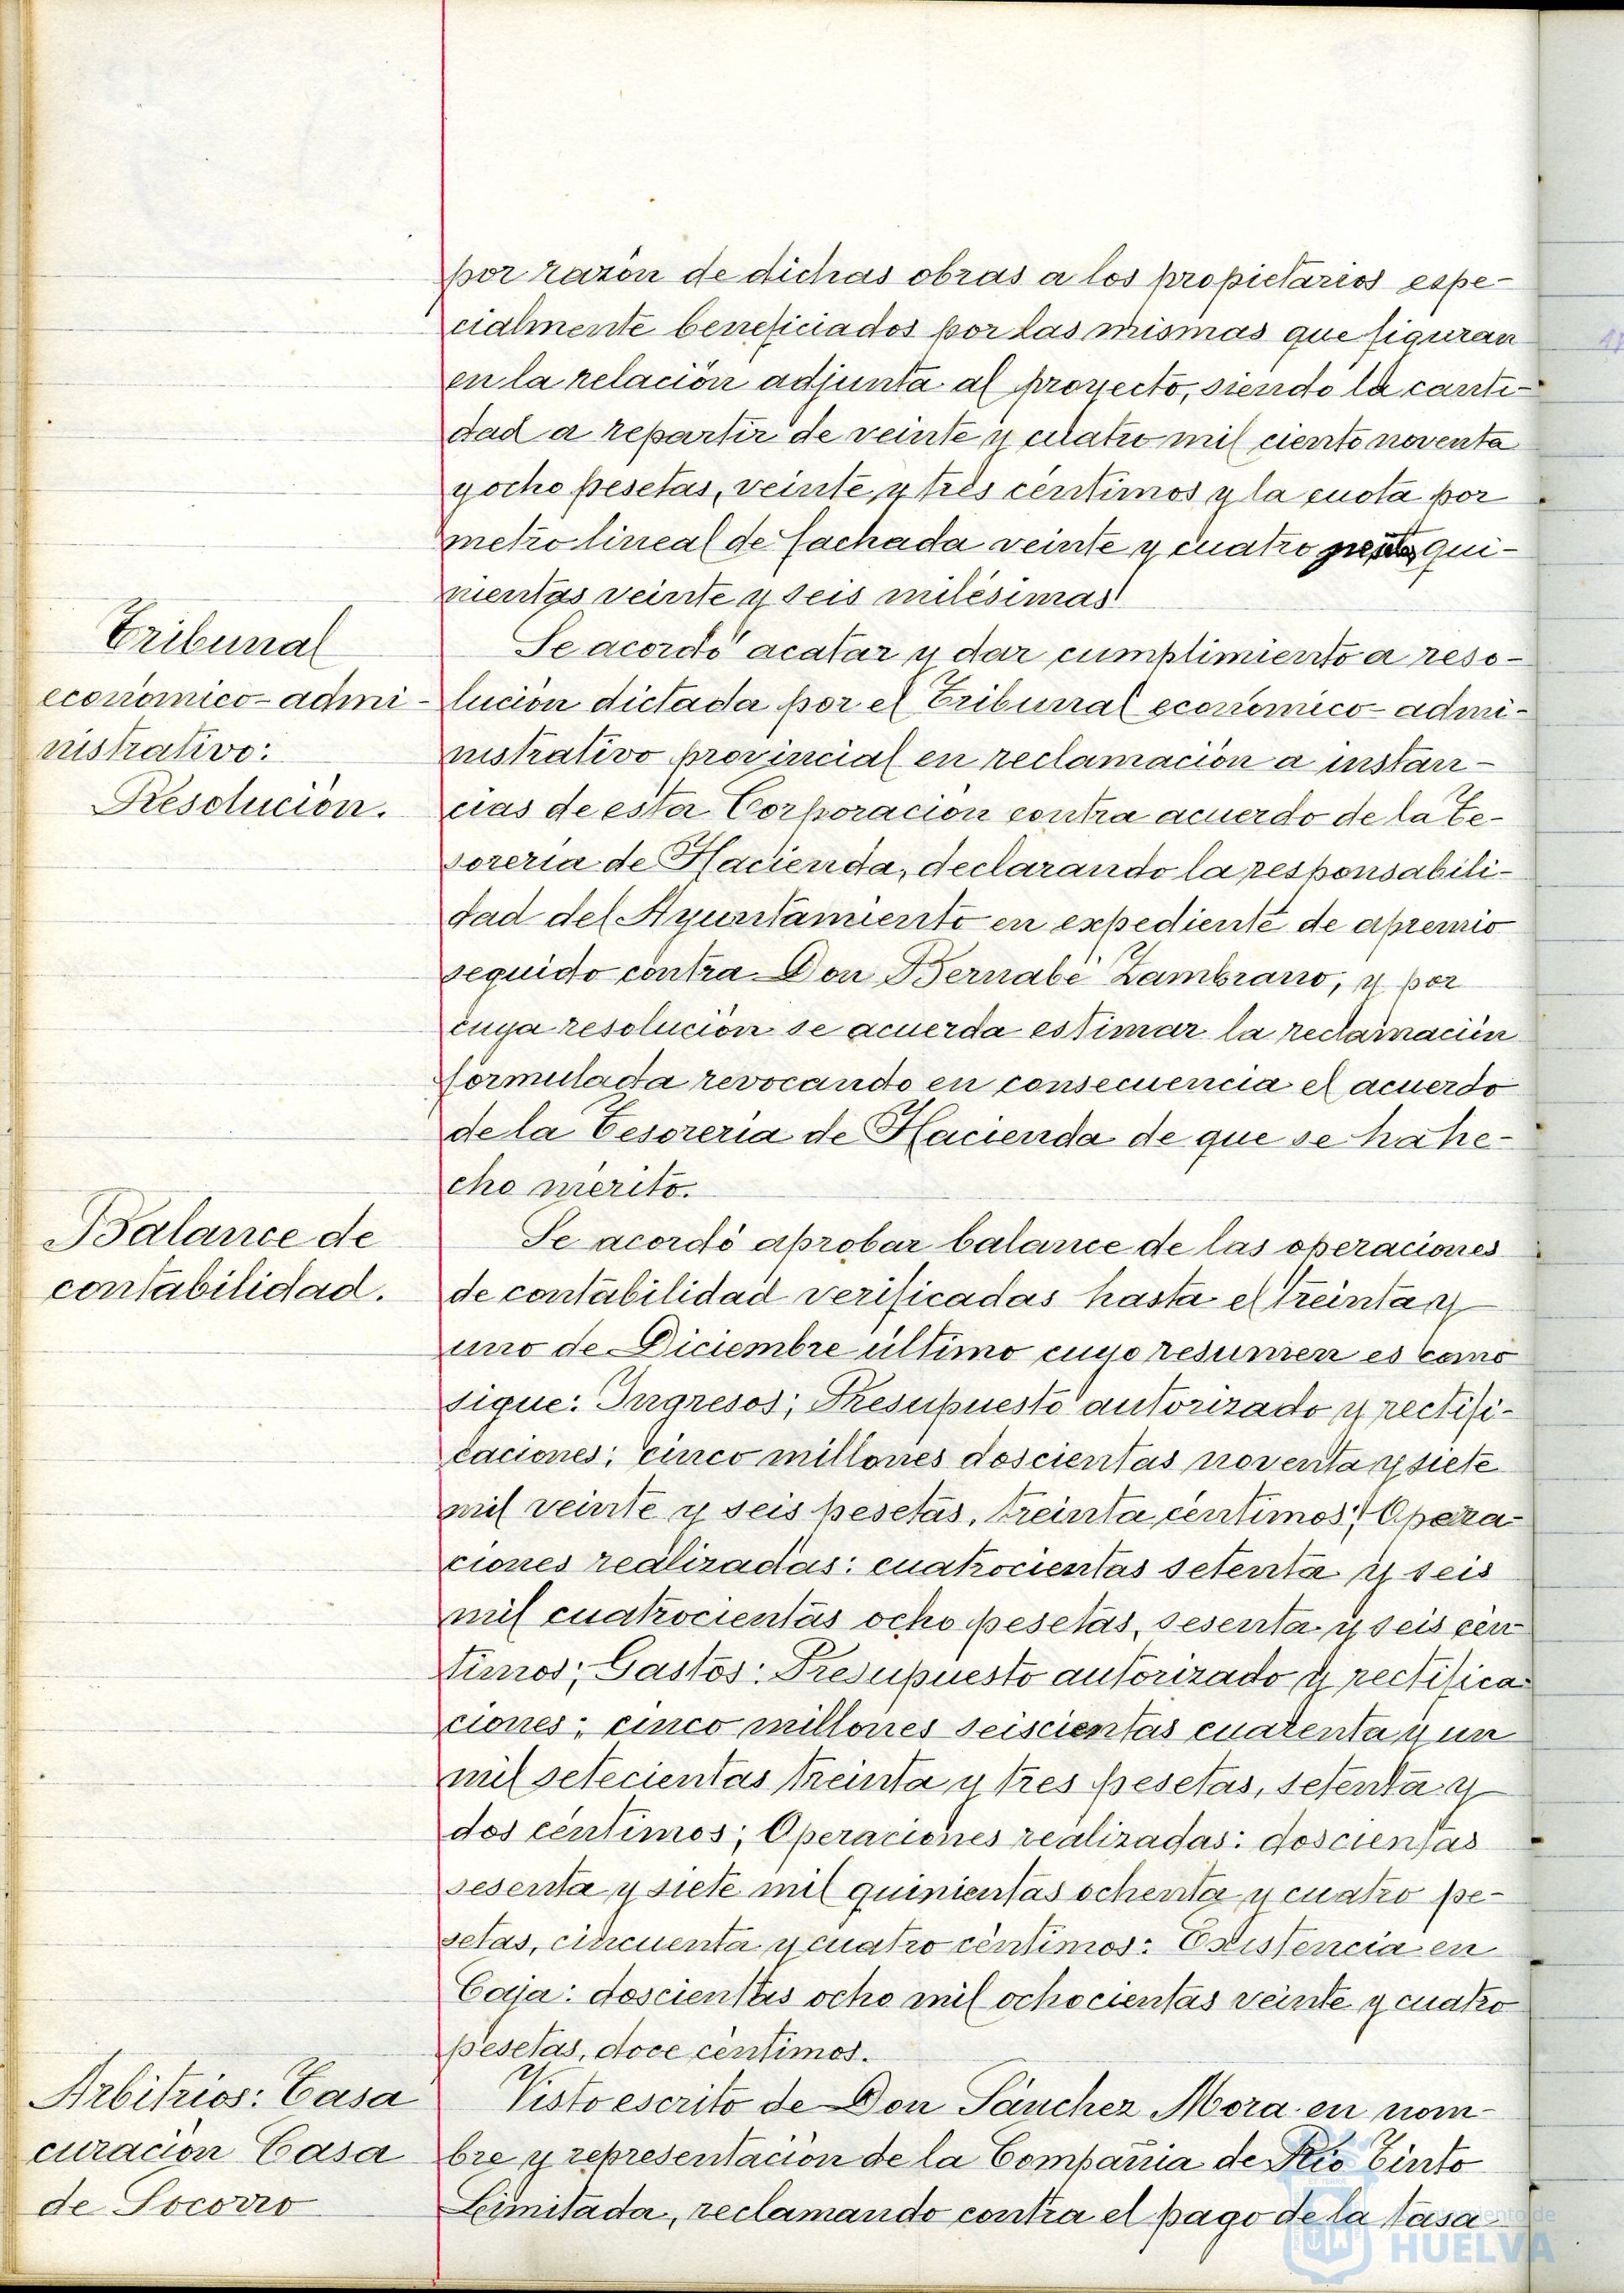 por razón de dichas obras a los propietarios espe-
cialmente beneficiados por las mismas que figuran
en la relación adjunta al proyecto, siendo la canti-
dad a repartir de veinte y cuatro mil ciento noventa
y ocho pesetas, veinte y tres céntimos y la cuota por
metro lineal de fachada veinte y cuatro qui-
nientas veinte y seis milésimas
Tribunal
económico-admi-
nistrativo:
Resolución.
Se acordó acatar y dar cumplimiento a reso-
lución dictada por el Tribunal económico-admi-
nistrativo provincial en reclamación a instan-
cias de esta Corporación contra acuerdo de la Te-
sorería de Hacienda, declarando la responsabili-
dad del Ayuntamiento en expediente de apremio
seguido contra Don Bernabé Zambrano, y por
cuya resolución se acuerda estimar la reclamación
formulada revocando en consecuencia el acuerdo
de la Tesorería de Hacienda de que se ha he-
cho mérito.
Balance de
contabilidad.
Se acordó aprobar balance de las operaciones
de contabilidad verificadas hasta el treinta y
uno de Diciembre último cuyo resumen es como
sigue: Ingresos; Presupuesto autorizado y rectifi-
caciones; cinco millones doscientas noventa y siete
mil veinte y seis pesetas, treinta céntimos; Opera-
ciones realizadas: cuatrocientas setenta y seis
mil cuatrocientas ocho pesetas, sesenta y seis cén
timos; Gastos: Presupuesto autorizado y rectifica-
ciones; cinco millones seiscientas cuarenta y un
mil setecientas treinta y tres pesetas, setenta y
dos céntimos; Operaciones realizadas: doscientas
sesenta y siete mil quinientas ochenta y cuatro pe-
setas, cincuenta y cuatro céntimos: Existencia en
Caja: doscientas ocho mil ochocientas veinte y cuatro
pesetas, doce céntimos.
Arbitrios: Casa
curación Casa
de Socorro
Visto escrito de Don Sánchez Mora en nom-
bre y representación de la Compañía de Río Tinto
Limitada, reclamando contra el pago de la tasa
Ayuntamiento de
HUELVA